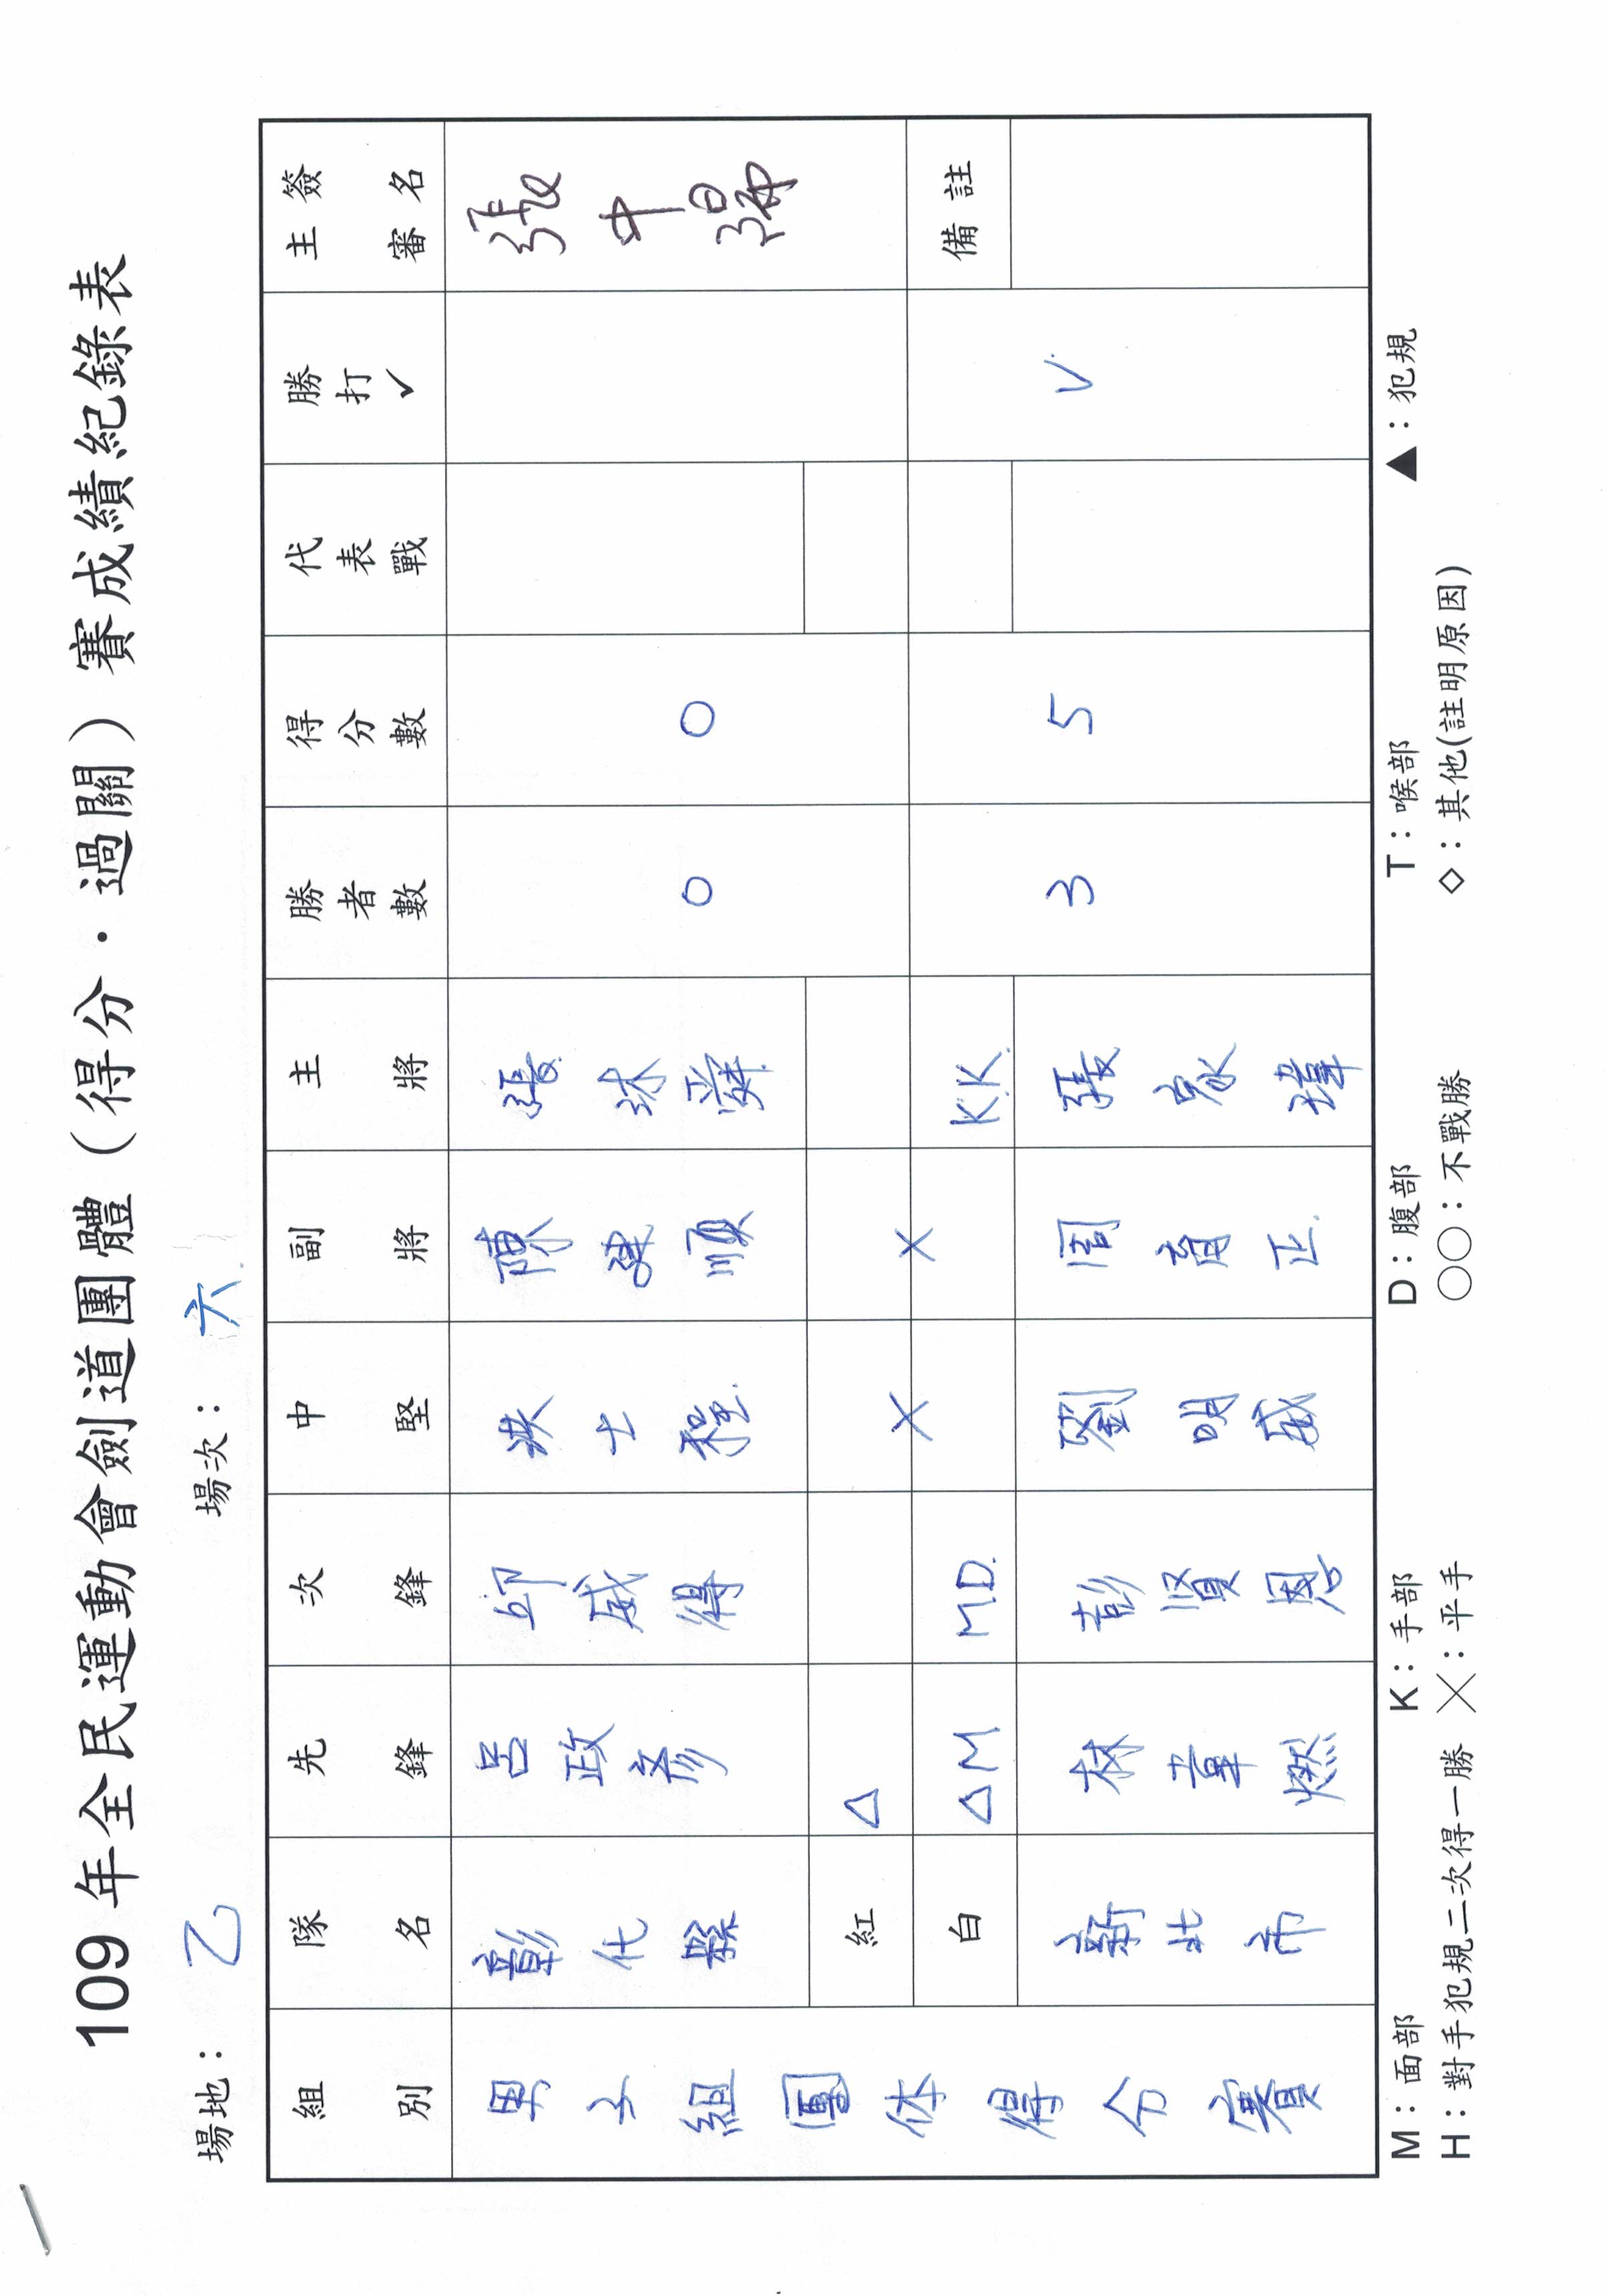 109 年全民運動會劍道團體（得分．過關）賽成績紀錄表
場地： 乙 場次： 六
組別 隊名 先鋒 次鋒 中堅 副將 主將 勝者數 得分數 代表戰 勝打✓ 主審簽名
男子組團体得分賽 彰化縣 呂政彥 邱威得 洪士程 陳建順 張沐舜 0 0 張中
紅 △
白 △M M.D. × × K.K. 備註
新北市 林韋燃 彭賢恩 劉明威 周育正 張家瑋 3 5 V
M：面部 K：手部 D：腹部 T：喉部 ▲：犯規
H：對手犯規二次得一勝 ╳：平手 ○○：不戰勝 ◇：其他(註明原因)